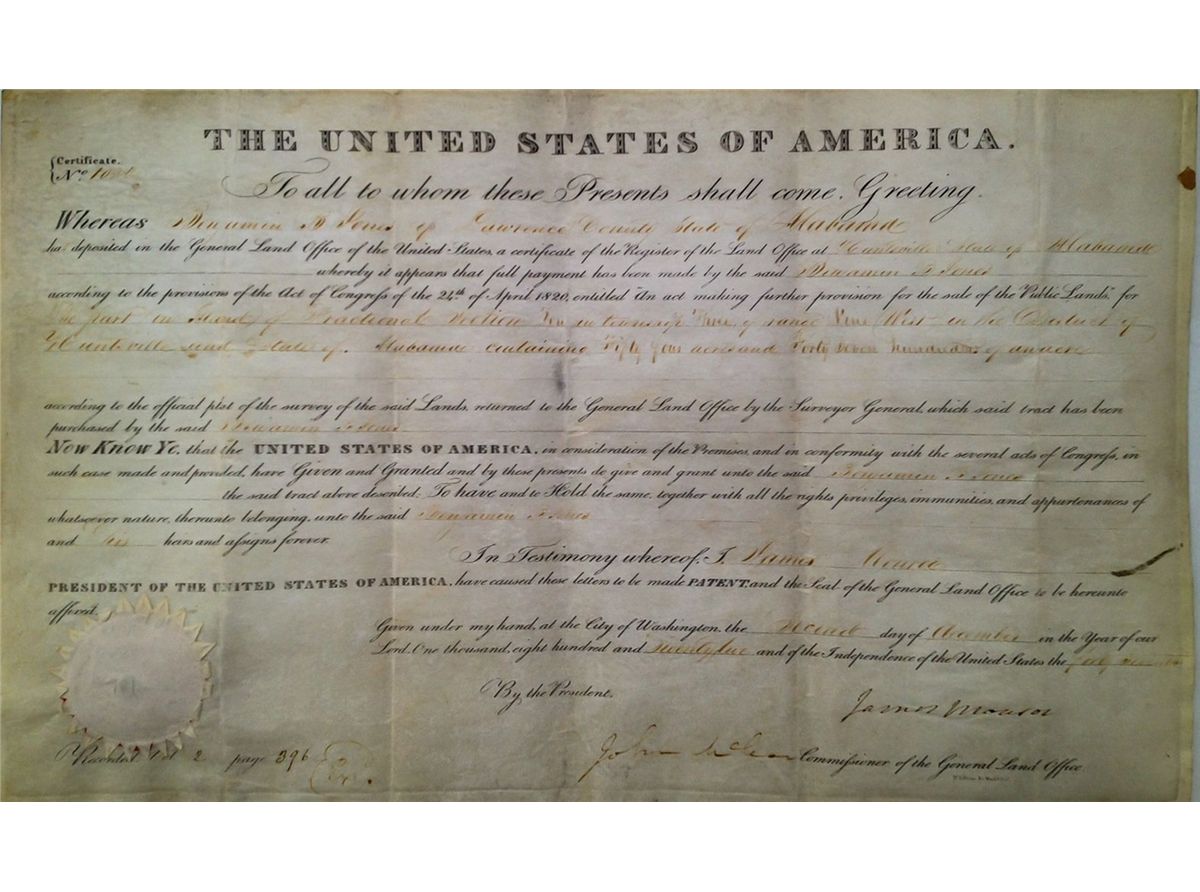 THE UNITED STATES OF AMERICA.
Certificate.
No.
To all to whom these Presents shall come, Greeting.
Whereas Benjamin Jones of Lawrence County State of Alabama
ha deposited in the General Land Office of the United States, a certificate of the Register of the Land Office at Huntsville State of Alabama
whereby it appears that full payment has been made by the said Benjamin Jones
according to the provisions of the Act of Congress of the 24th. of April 1820, entitled "An act making further provision for the sale of the Public Lands," for
Fractional Section Ten in township Three of range Nine West in the District of
Huntsville and State of Alabama containing Fifty four acres and Forty seven hundredths of an acre
according to the official plat of the survey of the said Lands, returned to the General Land Office by the Surveyor General, which said tract has been
purchased by the said Benjamin Jones
Now Know Ye, that the UNITED STATES OF AMERICA, in consideration of the Premises, and in conformity with the several acts of Congress, in
such case made and provided, have Given and Granted and by these presents do give and grant unto the said Benjamin Jones
the said tract above described: To have and to Hold the same, together with all the rights privileges, immunities, and appurtenances of
whatsoever nature, thereunto belonging, unto the said Benjamin Jones
and his heirs and assigns forever.
In Testimony whereof, I, James Monroe
PRESIDENT OF THE UNITED STATES OF AMERICA, have caused these letters to be made PATENT, and the Seal of the General Land Office to be hereunto
affixed.
Given under my hand, at the City of Washington, the day of in the Year of our
Lord, One thousand, eight hundred and and of the Independence of the United States the
By the President.
James Monroe
Recorded Vol 2 page 396
John McLean Commissioner of the General Land Office.